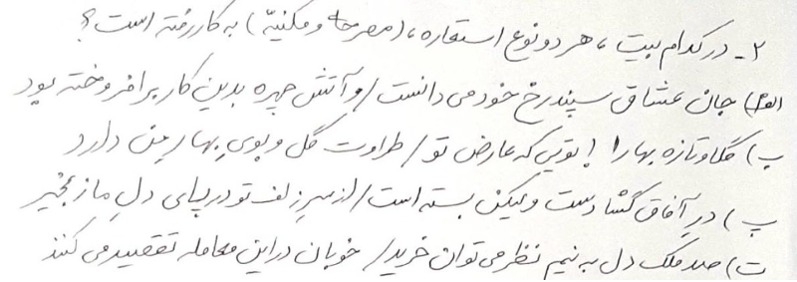 ۲- در کدام بیت، هر دو نوع استعاره، (مصرحه و مکنیّه) به کار رفته است؟
الف) جان عشاق سپند رخ خود می دانست / و آتش چهره بدین کار برافروخته بود
ب) گلا و تازه بهارا / تویی که عارض تو / طراوت گل و بوی بهار من دارد
پ) در آفاق گشادست ولیکن بسته است / از سر زلف تو در پای دل ما زنجیر
ت) صد ملک دل به نیم نظر می توان خرید / خوبان در این معامله تقصیر می کنند